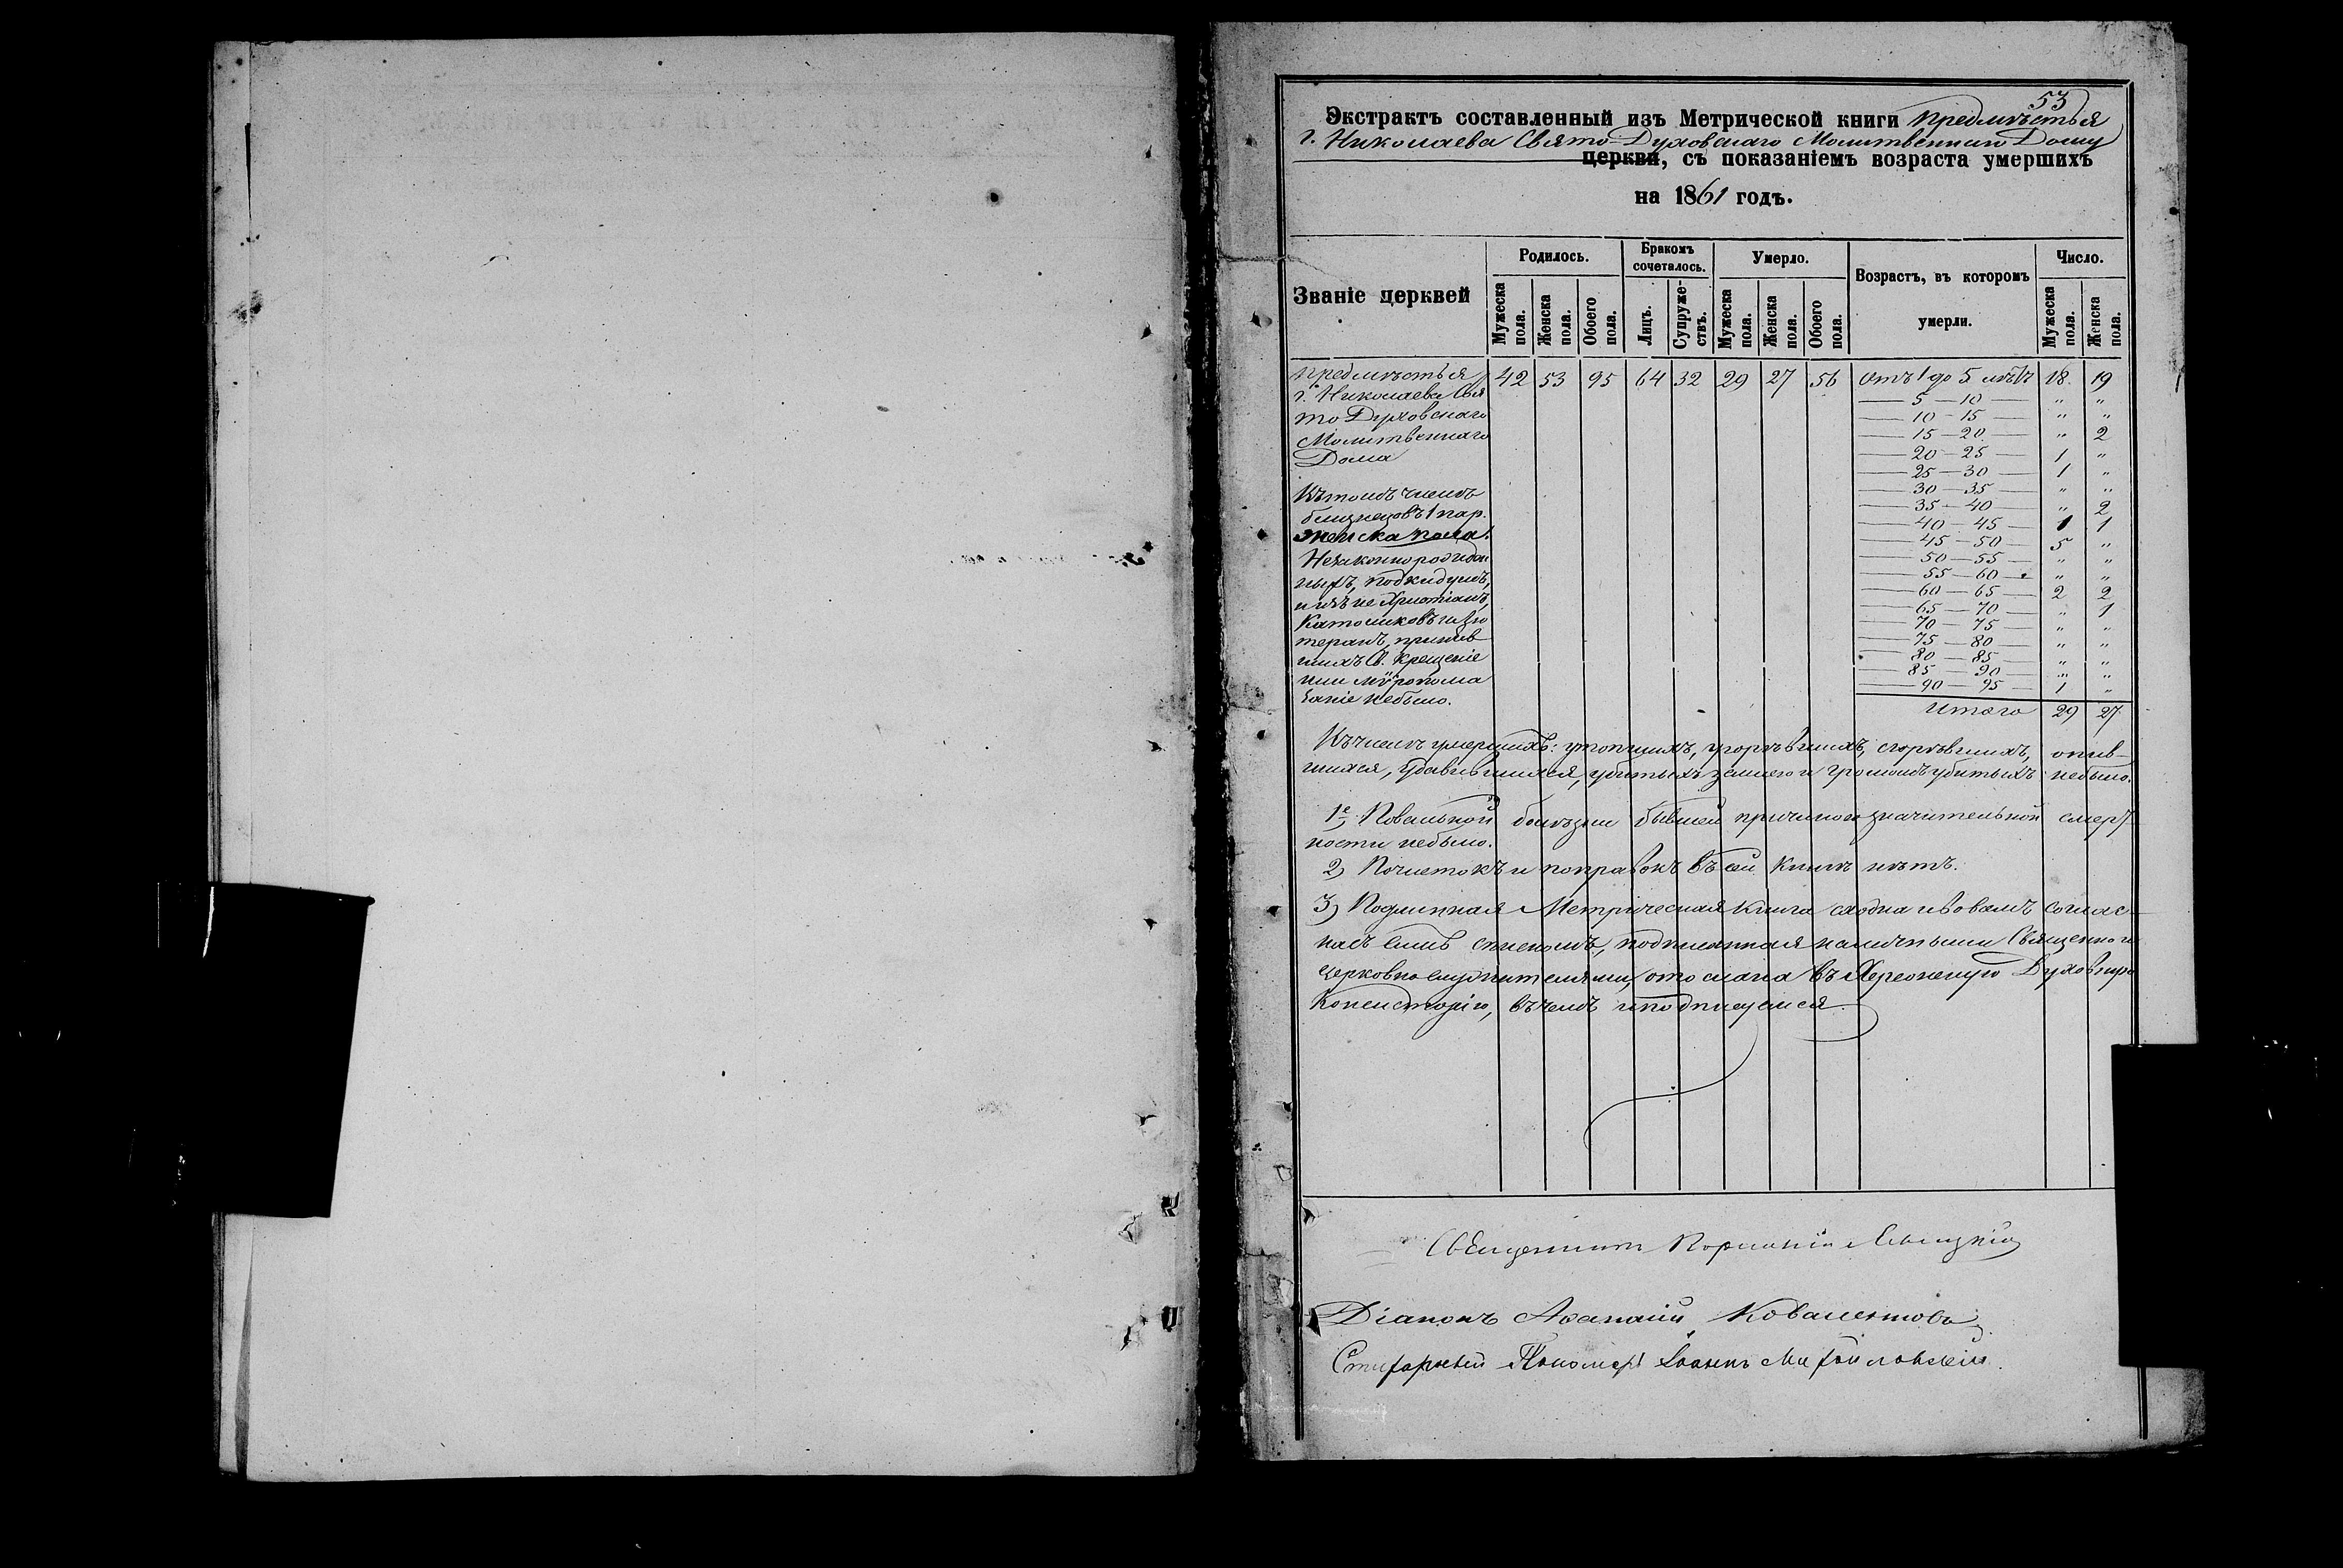 53
Экстрактъ составленный изъ Метрической книги предмѣстья
г. Николаева Свято-Духовскаго Молитвеннаго Дому
церкви, съ показаніемъ возраста умершихъ
на 1861 годъ.
Званіе церквей
Родилось.
Мужеска пола.
Женска пола.
Обоего пола.
Бракомъ сочеталось.
Лицъ.
Супружествъ.
Умерло.
Мужеска пола.
Женска пола.
Обоего пола.
Возрастъ, въ которомъ
умерли.
Число.
Мужеска пола.
Женска пола.
предмѣстья 42 53 95 64 32 29 27 56 Отъ 1 до 5 лѣтъ 18 19
г. Николаева Свя
— 5 — 10 — " "
то Духовскаго
— 10 — 15 — " "
Молитвеннаго
— 15 — 20 — " 2
Дома
— 20 — 25 — 1 "
— 25 — 30 — 1 "
Въ томъ числѣ
— 30 — 35 — " "
близнецовъ 1 пар.
— 35 — 40 — " 2
женска пола.
— 40 — 45 — 1 1
— 45 — 50 — 5 "
Незаконнорожден
— 50 — 55 — " "
ныхъ, подкидушъ,
— 55 — 60 — " "
и изъ не Христіанъ,
— 60 — 65 — 2 2
Католиковъ и Лю
— 65 — 70 — " 1
— 70 — 75 — " "
теранъ, приняв
— 75 — 80 — " "
шихъ Св. Крещеніе
— 80 — 85 — " "
или мѵропома
— 85 — 90 — " "
— 90 — 95 — 1 "
заніе небыло.
Итого 29 27
Въ числѣ умершихъ: утопшихъ, угорѣвшихъ, сгорѣвшихъ, опив-
шихся, удавившихся, убитыхъ землею и громомъ убитыхъ небыло.
1е) Повальной болѣзни бывшей причиною значительной смерт-
ности небыло.
2) Почистокъ и поправокъ въ сей книгѣ нѣтъ.
3) Подлинная Метрическая книга сходна и во всемъ соглас-
на съ симъ спискомъ, подписанная наличными Священно и
церковнослужителями, отослана въ Херсонскую Духовную
Консисторію, въ чемъ и подписуемся.
Священникъ
Діаконъ Аѳанасій Ковалентовъ
Пономарь Іоаннъ